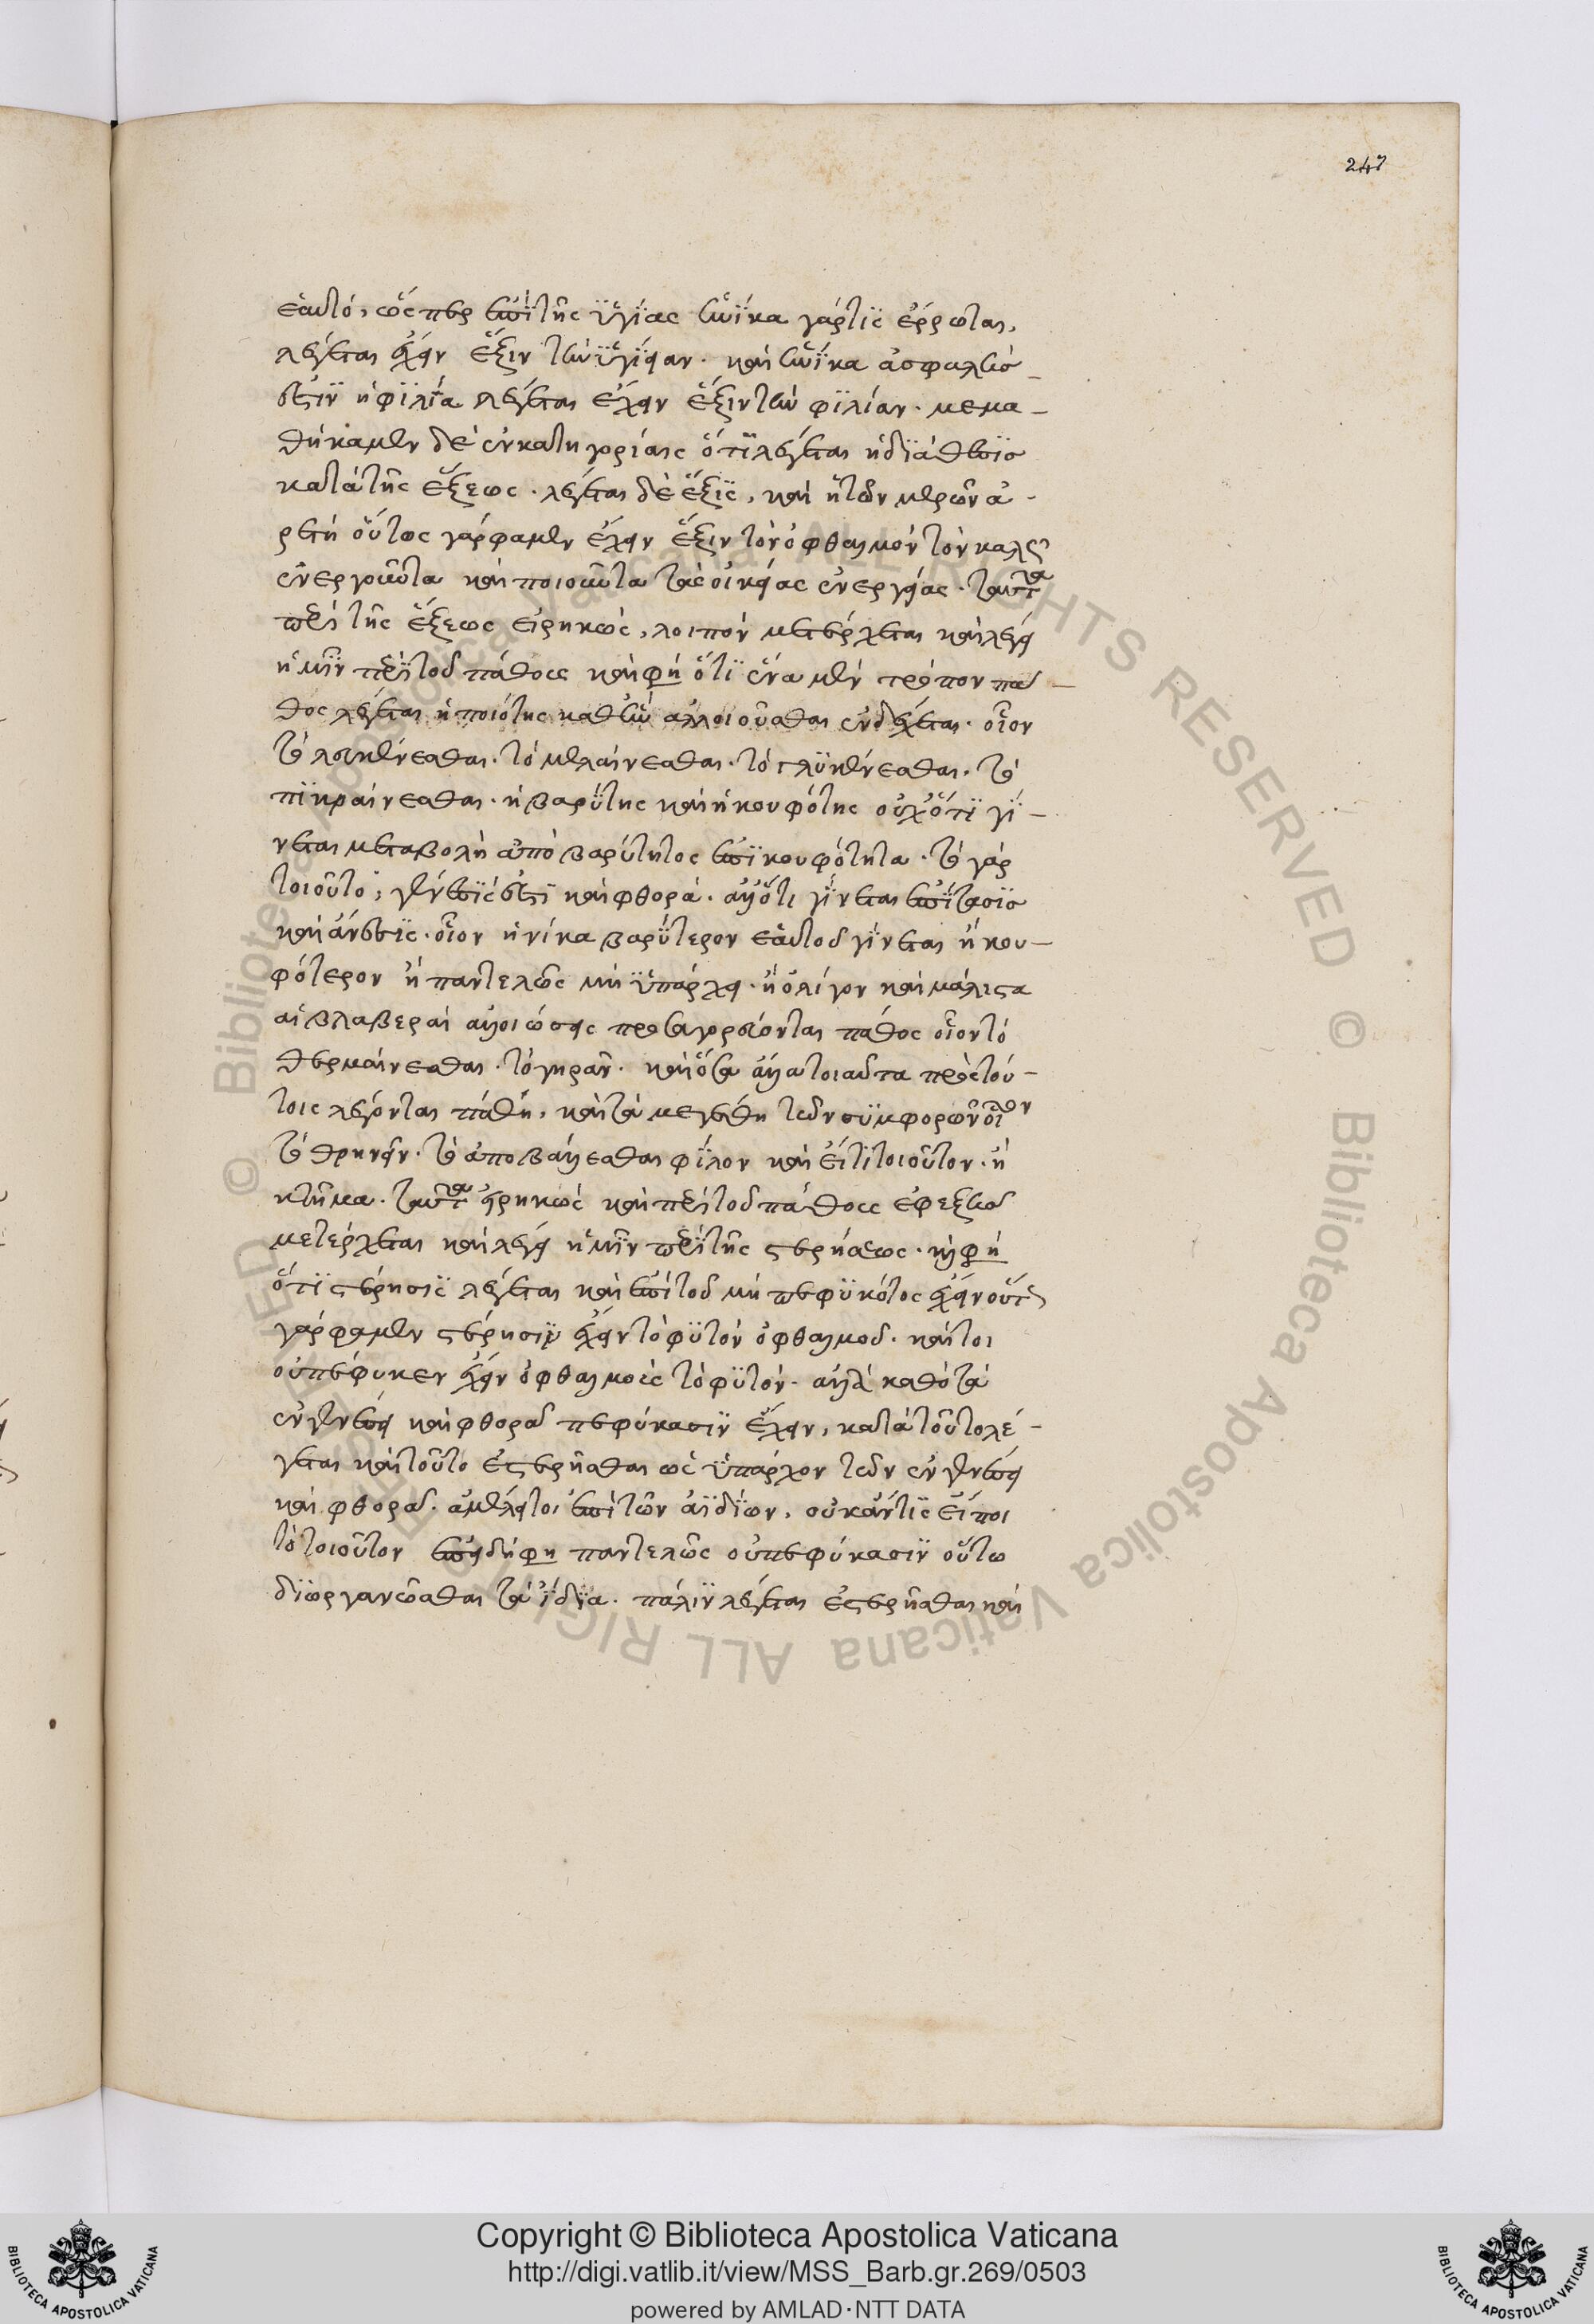 247
ἑαυτό, ὥσπερ ἐπὶ τῆς ὑγίας ἡνίκα γάρ τις ἔρρωται,
λέγεται ἔχειν ἕξιν τὴν ὑγίειαν. καὶ ἡνίκα ἀσφαλὴσ
ἐστὶν ἡ φιλία λέγεται ἔχειν ἕξιν τὴν φιλίαν. μεμα-
θήκαμεν δὲ ἐν κατηγορίαις ὅτι λέγεται ἡ διάθεσισ
κατὰ τῆς ἕξεως. λέγεται δὲ ἕξις, καὶ ἡ τῶν μερῶν ἀ-
ρετή οὕτως γάρ φαμεν ἔχειν ἕξιν τὸν ὀφθαλμὸν τὸν καλῶς
ἐνεργοῦντα καὶ ποιοῦντα τὰς οἰκείας ἐνεργείας. ταῦτα
περὶ τῆς ἕξεως εἰρηκὼς, λοιπὸν μετέρχεται καὶ λέγει
ἡμῖν περὶ τοῦ πάθους καὶ φη ὅτι ἕνα μὲν τρόπον πά-
θος λέγεται ἡ ποιότης καθ ἣν ἀλλοιοῦσθαι ἐνδέχεται. οἷον
τὸ λευκαίνεσθαι. τὸ μελαίνεσθαι. τὸ γλυκαίνεσθαι. τὸ
πικραίνεσθαι. ἡ βαρύτης καὶ ἡ κουφότης οὐχ ὅτι γί-
νεται μεταβολὴ ἀπὸ βαρύτητος ἐπὶ κουφότητα. τὸ γὰρ
τοιοῦτο, γένεσίς ἐστι καὶ φθορά. ἀλλ ὅτι γίνεται ἐπίτασισ
καὶ ἄνεσις. οἷον ἡνίκα βαρύτερον ἑαυτοῦ γίνεται ἢ κου-
φότερον ἢ παντελῶς μὴ ὑπάρχει. ἢ ὀλίγον καὶ μάλιστα
αἱ βλαβεραὶ ἀλλοιώσεις προσαγορεύονται πάθος οἷον τὸ
θερμαίνεσθαι. τὸ γηρᾶν. καὶ ὅσα ἄλλα τοιαῦτα πρὸς τού-
τοις λέγονται πάθη, καὶ τὰ μεγέθη τῶν συμφορῶν οἷον
τὸ θρηνεῖν. τὸ ἀποβάλλεσθαι φίλον καὶ εἴ τι τοιοῦτον. ἢ
κτῆμα. ταῦτα εἰρηκὼς καὶ περὶ τοῦ πάθους ἐφεξῆσ
μετέρχεται καὶ λέγει ἡμῖν περὶ τῆς στερήσεως. καὶ φη
ὅτι στέρησις λέγεται καὶ ἐπὶ τοῦ μὴ πεφυκότος ἔχειν οὕτως
γάρ φαμεν στέρησιν ἔχειν τὸ φυτὸν ὀφθαλμοῦ. καίτοι
οὐ πέφυκεν ἔχειν ὀφθαλμοὺς τὸ φυτόν. ἀλλὰ καθὸ τὰ
ἐν γενέσει καὶ φθορᾶ πεφύκασιν ἔχειν, κατὰ τοῦτο λέ-
γεται καὶ τοῦτο ἐστερῆσθαι ὡς ὑπάρχον τῶν ἐν γενέσει
καὶ φθορᾶ. ἀμέλει τοι ἐπὶ τῶν ἀϊδίων, οὐκ ἄν τις εἴποι
τὸ τοιοῦτον ἐπειδήφη παντελῶς οὐ πεφύκασιν οὕτω
διωργανῶσθαι τὰ ἀΐδια. πάλιν λέγεται ἐστερῆσθαι καὶ
Copyright © Biblioteca Apostolica Vaticana
http://digi.vatlib.it/view/MSS_Barb.gr.269/0503
powered by AMLAD·NTT DATA